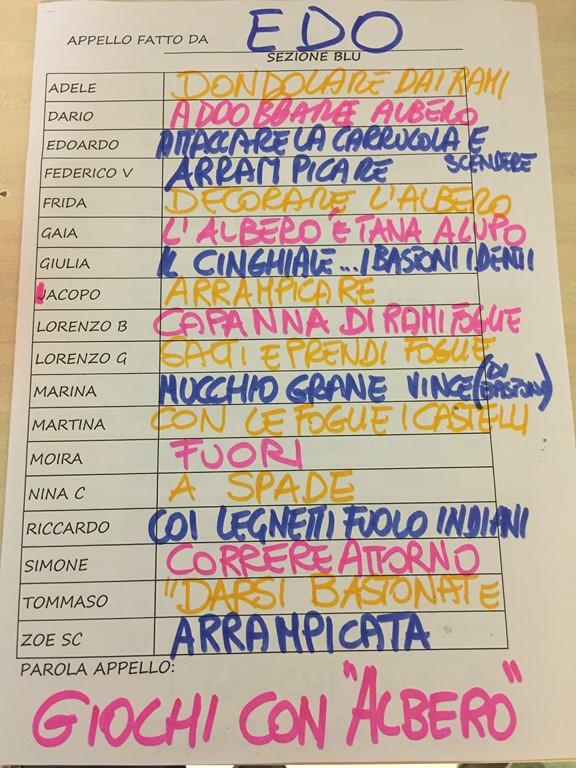 APPELLO FATTO DA EDO
SEZIONE BLU
ADELE DONDOLARE DAI RAMI
DARIO ADDOBBARE ALBERO
EDOARDO ATTACCARE LA CARRUCOLA E SCENDERE
FEDERICO V ARRAMPICARE
FRIDA DECORARE L'ALBERO
GAIA L'ALBERO È TANA A LUPO
GIULIA IL CINGHIALE... I BASTONI I DENTI
JACOPO ARRAMPICARE
LORENZO B CAPANNA DI RAMI FOGLIE
LORENZO G E PRENDI FOGLIE
MARINA MUCCHIO GRANE VINCE (DI BASTONI)
MARTINA CON LE FOGLIE I CASTELLI
MOIRA FUORI
NINA C A SPADE
RICCARDO COI LEGNETTI FUOLO INDIANI
SIMONE CORRERE ATTORNO
TOMMASO "DARSI BASTONATE
ZOE SC ARRAMPICATA
PAROLA APPELLO:
GIOCHI CON "ALBERO"